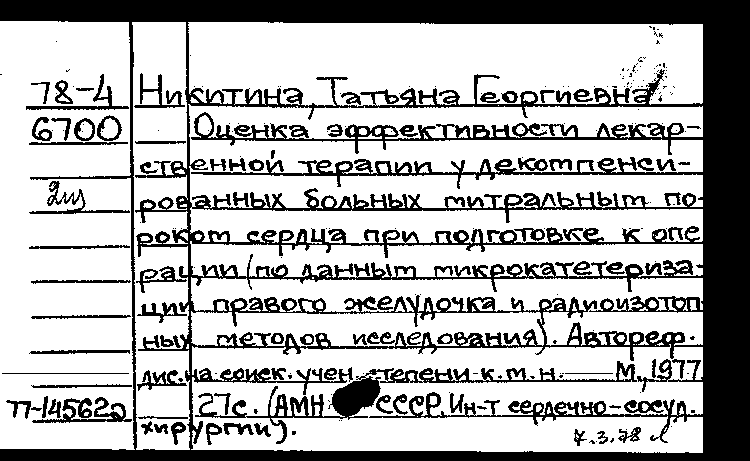 78-4 Никитина, Татьяна Георгиевна.
6700 Оценка эффективности лекар-
ственной терапии у декомпенси-
2из рованных больных митральным по-
роком сердца при подготовке к опе
рации (по данным микрокатетериза-
ции правого желудочка и радиоизотоп
ных методов исследования). Автореф.
дис. на соиск. учен. степени к.м.н. М., 1977
77-14562 27с. (АМН СССР. Ин-т сердечно-сосуд.
хирургии).
7.3.78